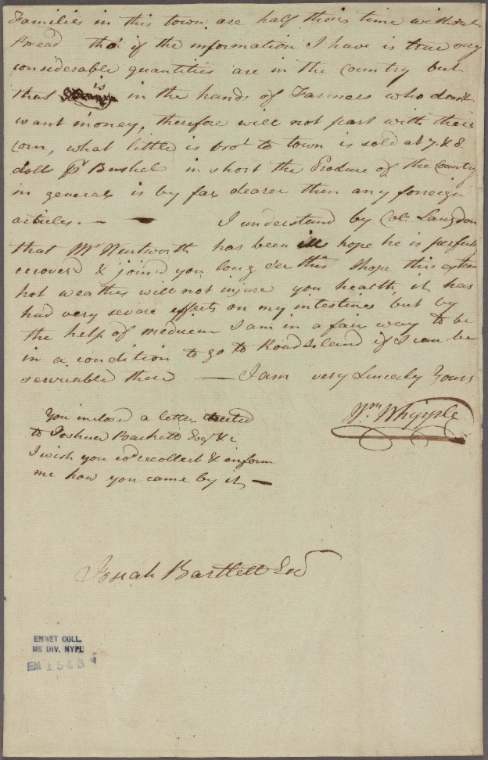 Families in this town are half their time without
Bread tho' if the information I have is true very
considerable quantities are in the country but
that is in the hands of Farmers who dont
want money, therefore will not part with their
corn, what little is bro't to town is sold at 7 & 8
dolls pr Bushel in short the Produce of the Country
in general is by far dearer then any forreign
articles. — — I understand by Colo. Langdon
that Mr Wentworth has been ill hope he is perfectly
recoverd & joind you long e'er this I hope this extrem
hot weather will not injure you health, it has
had very severe effects on my intestines but by
the help of medicin I am in a fair way to be
in a condition to go to Road Island if I can be
serviceable there — I am very Sincerly Yours
Wm Whipple
You inclosed a letter directed
to Joshua Brackett Esqr &c
I wish you co'd recollect & inform
me how you came by it, —
Josiah Bartlett Esqr
EMMET COLL.
MS. DIV. NYPL
EM 1543